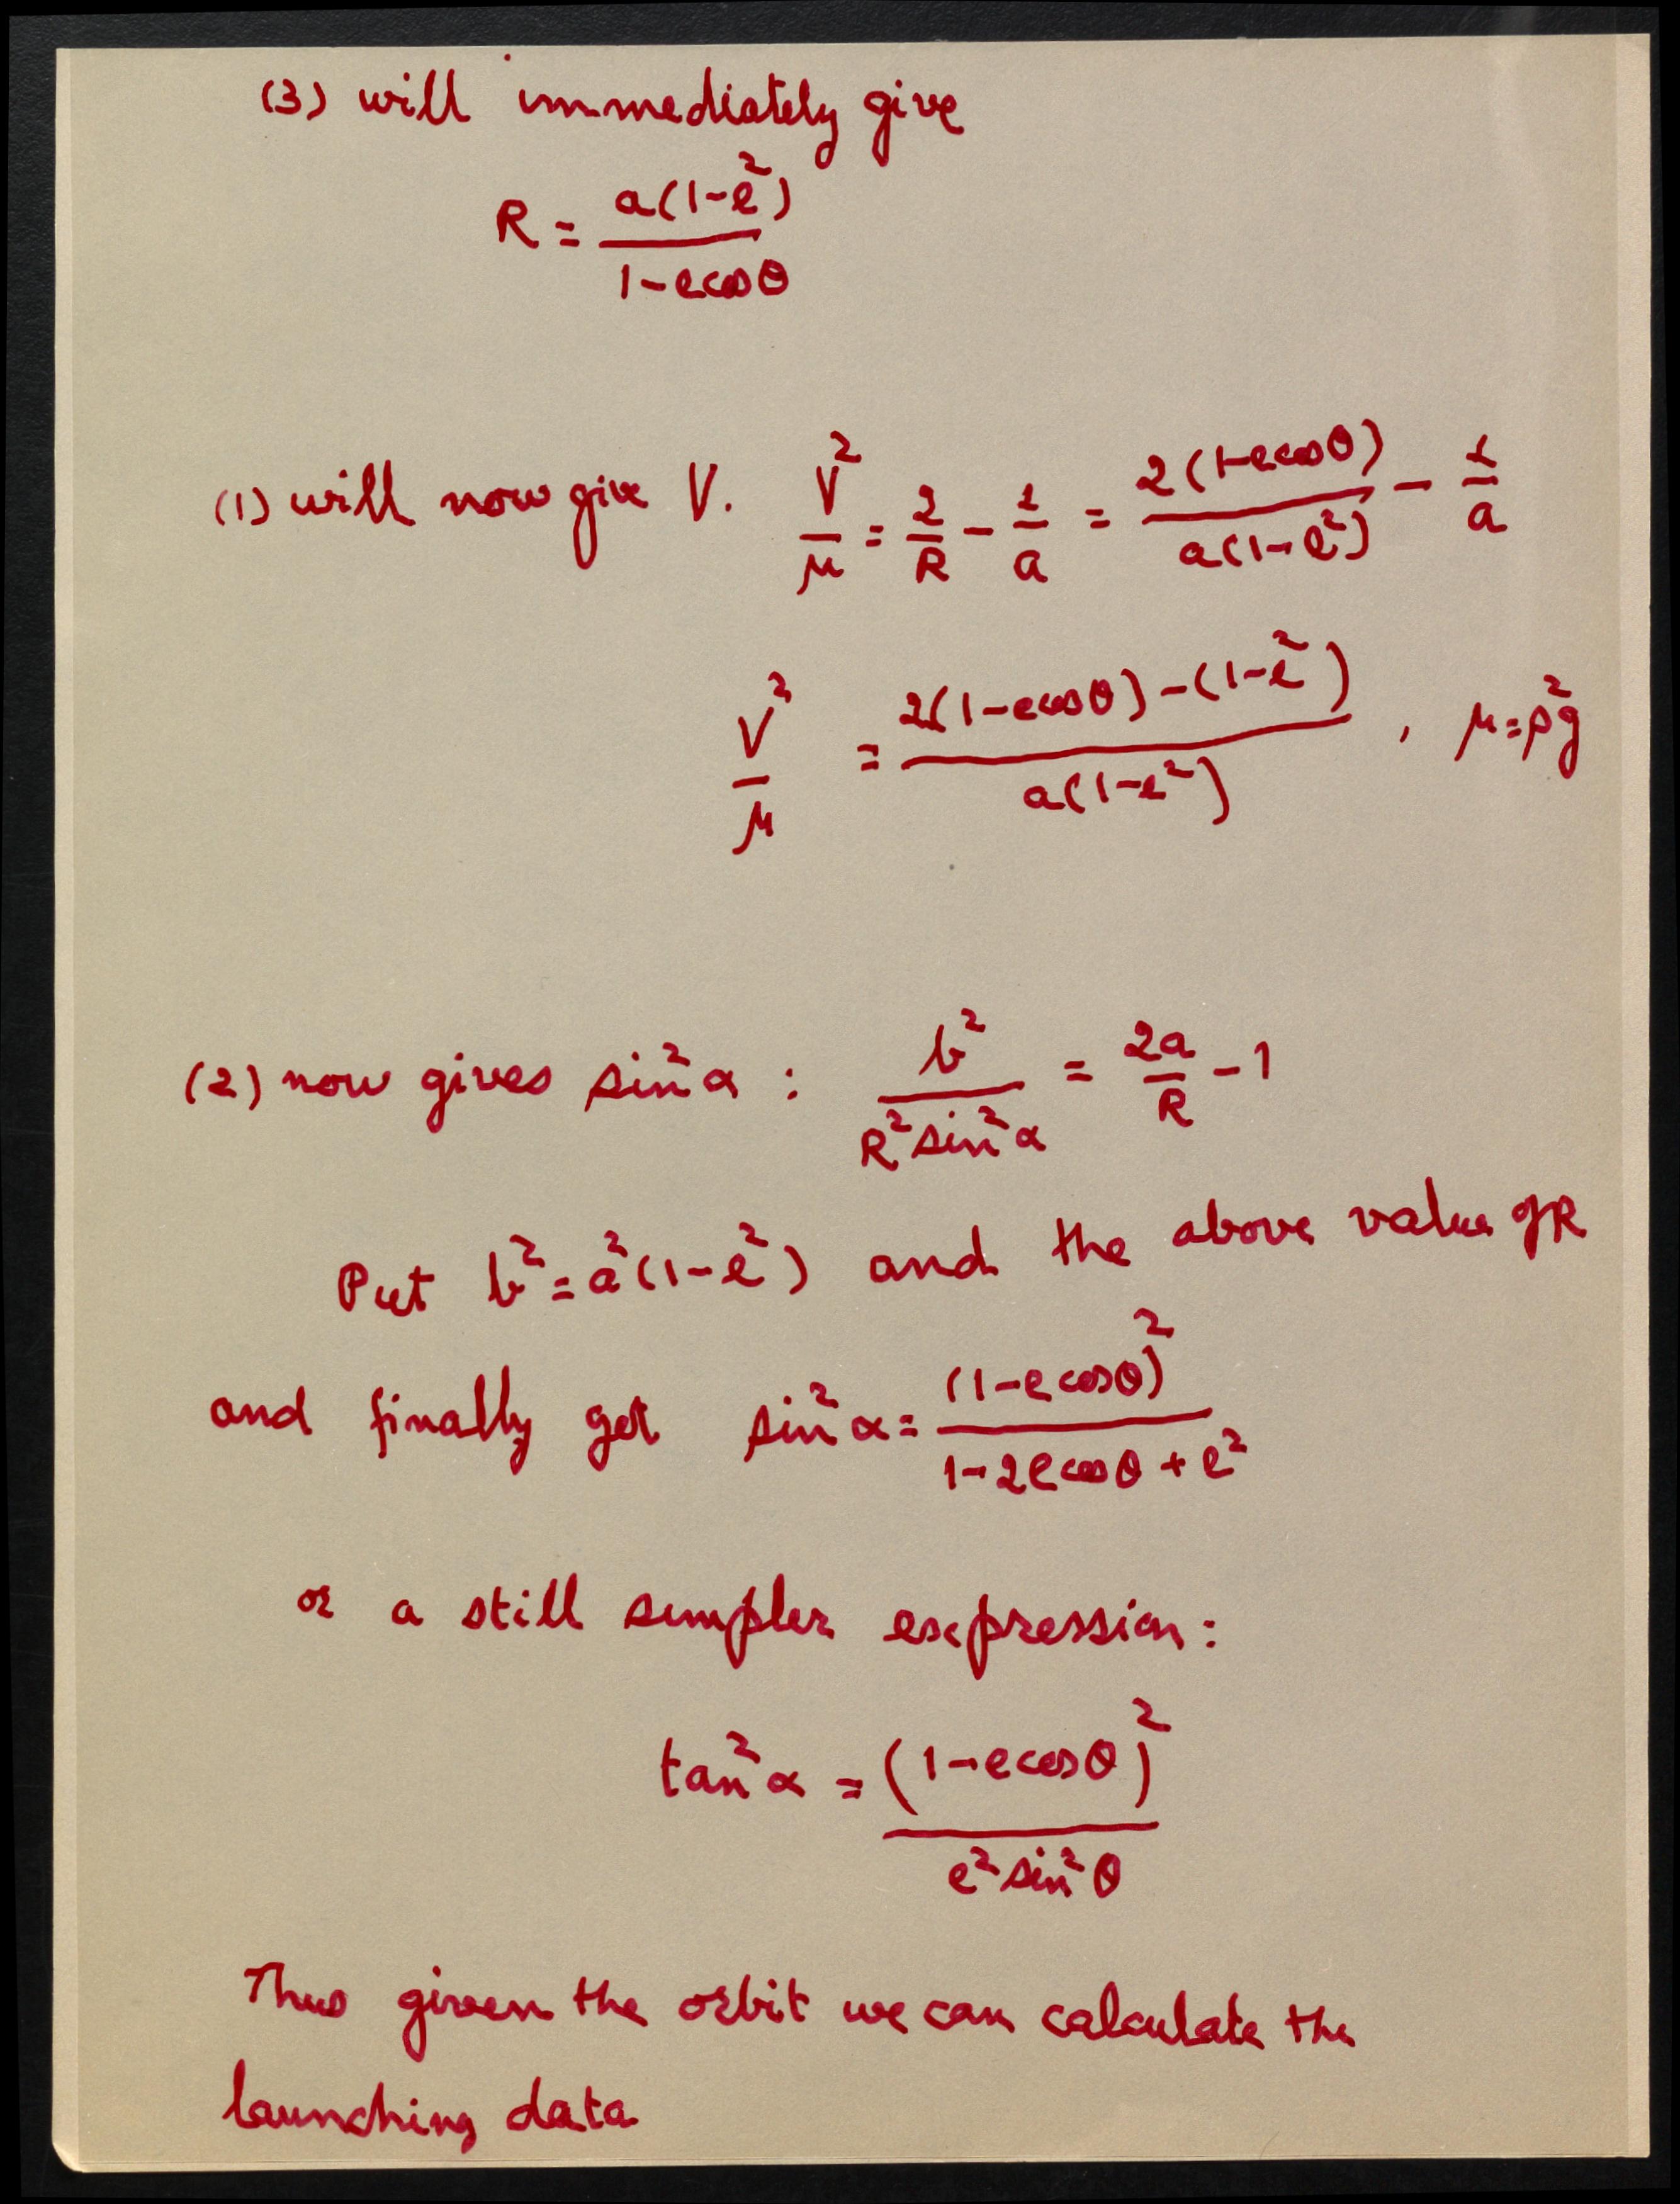 (3) will immediately give
R = a(1-e²) / 1-ecosθ
(1) will now give V. V²/μ = 2/R - 1/a = 2(1-ecosθ) / a(1-e²) - 1/a
V²/μ = 2(1-ecosθ)-(1-e²) / a(1-e²) , μ=ρ²g
(2) now gives sin²α : b² / R²sin²α = 2a/R - 1
Put b²=a²(1-e²) and the above value of R
and finally get sin²α = (1-ecosθ)² / 1-2ecosθ+e²
or a still simpler expression:
tan²α = (1-ecosθ)² / e²sin²θ
Thus given the orbit we can calculate the
launching data